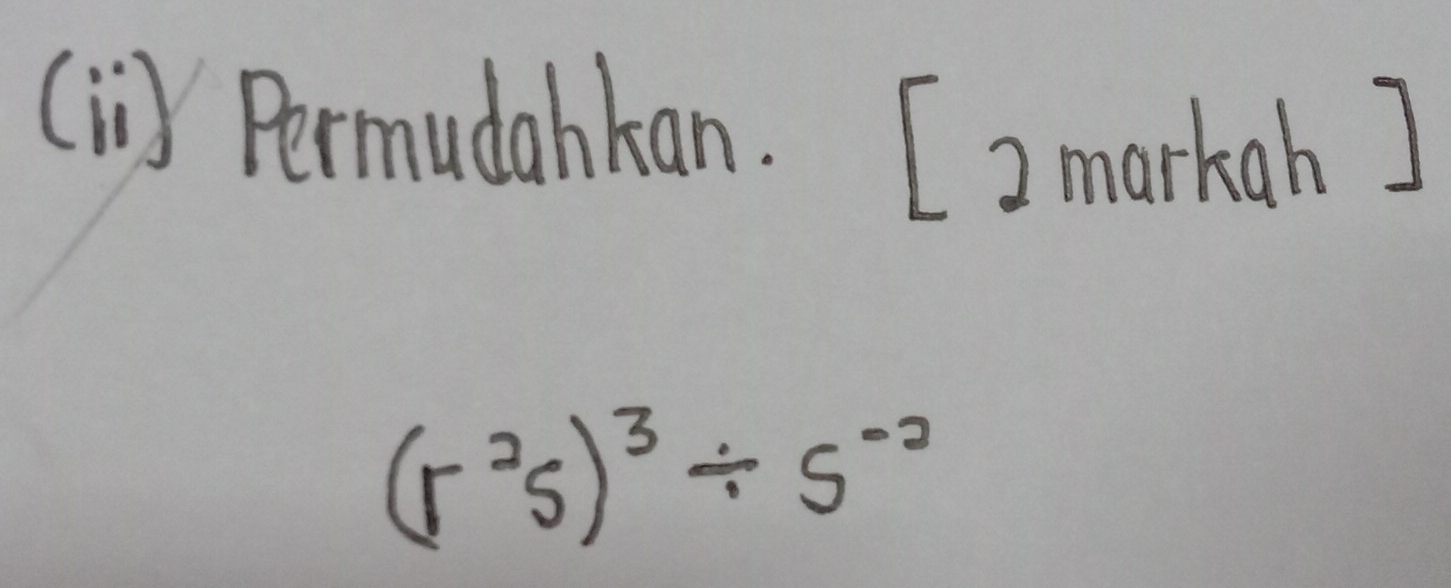 (ii) Permudahkan. [ 2 markah ]
(r²s)³ ÷ s⁻²